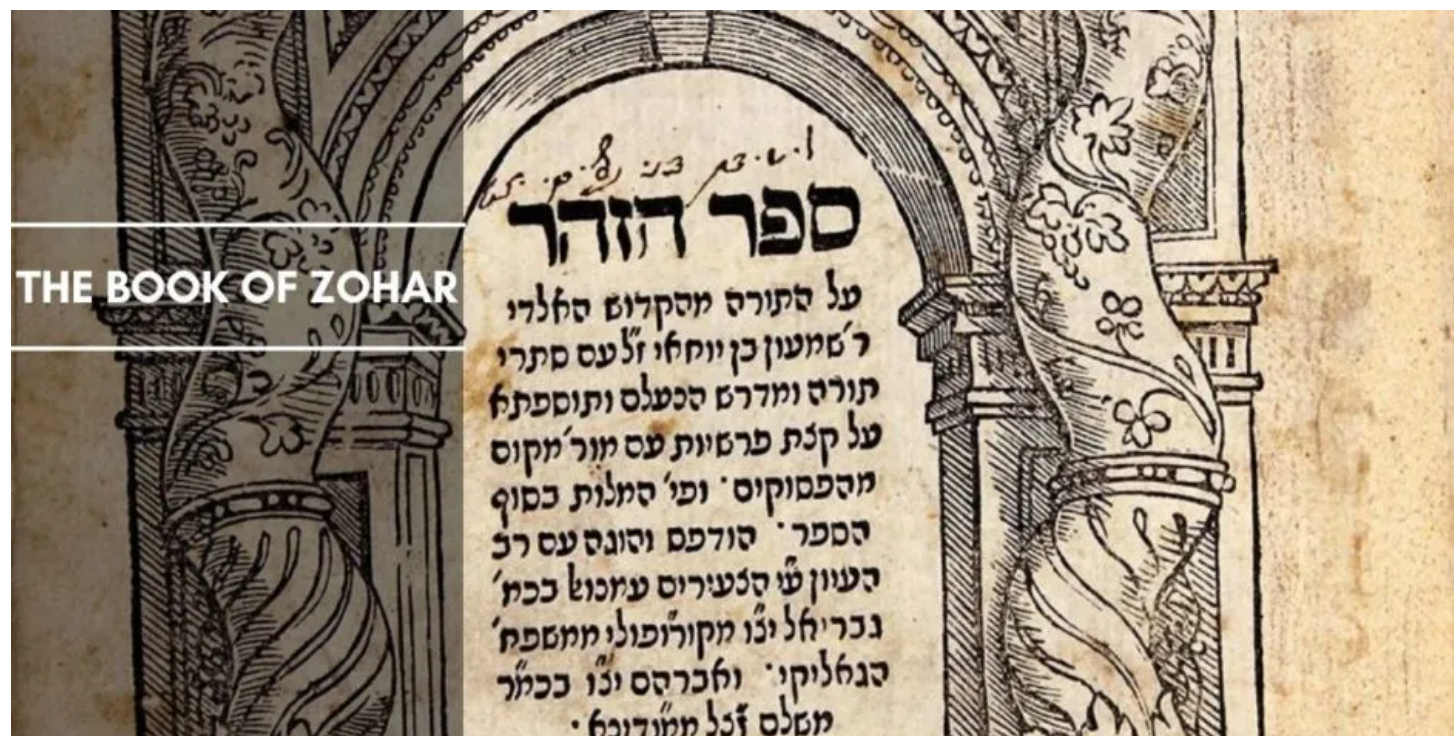 THE BOOK OF ZOHAR
ספר הזהר
על התורה מהקדוש האלדי
ר'שמעון בן יוחאי ז"ל עם סתרי
תורה ומדרש הנעלם ותוספתא
על קצת פרשיות עם מור'מקום
מהפסוקים · ופי' המלות בסוף
הספר · הודפס והוגה עם רב
העיון ע"י הצעירים עמנואל בכמ'
גבריאל יצ"ו מקורופולי ממשפח'
הגאליקי · ואברהם יצ"ו בכמ"ר
משלם זצ"ל ממודינא ·